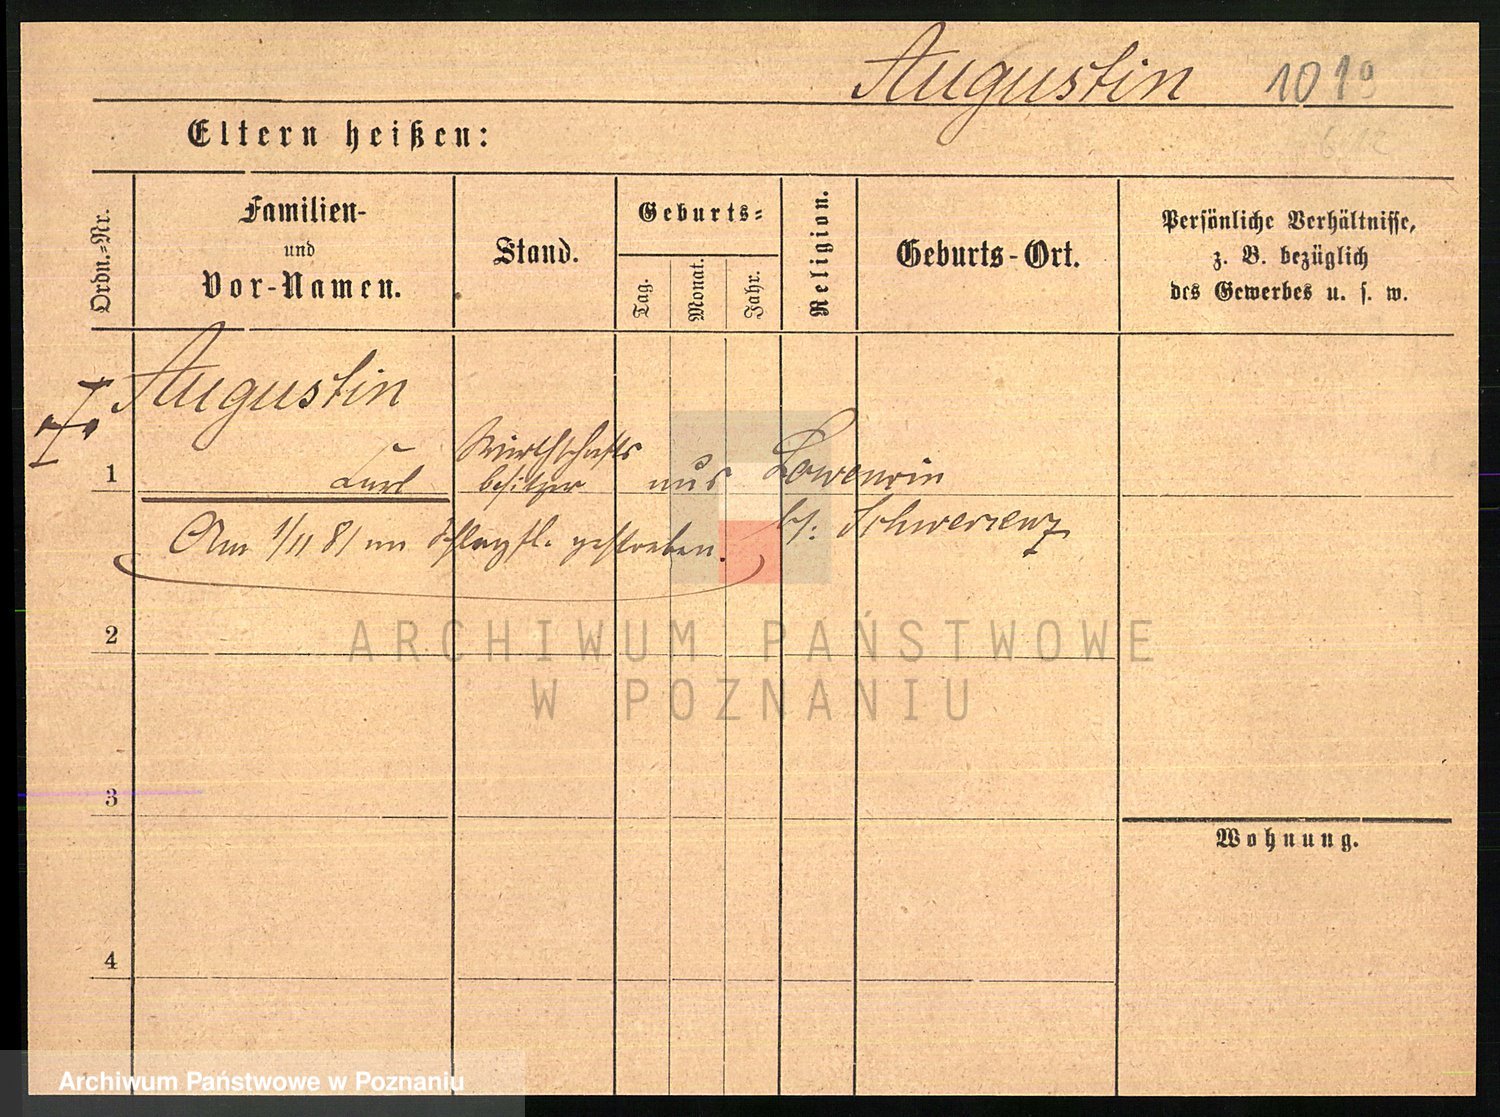 Augustin 1019
Eltern heißen:
Ordn.-Nr.
Familien-
und
Vor-Namen.
Stand.
Geburts-
Tag.
Monat.
Jahr.
Religion.
Geburts-Ort.
Persönliche Verhältnisse,
z. B. bezüglich
des Gewerbes u. s. w.
Augustin
1 Carl
Wirthschafts
besitzer
aus Lowencin
bs. Schwersenz
Am 1/11 81 im gestorben.
2
ARCHIWUM PAŃSTWOWE
W POZNANIU
3
Wohnung.
4
Archiwum Państwowe w Poznaniu